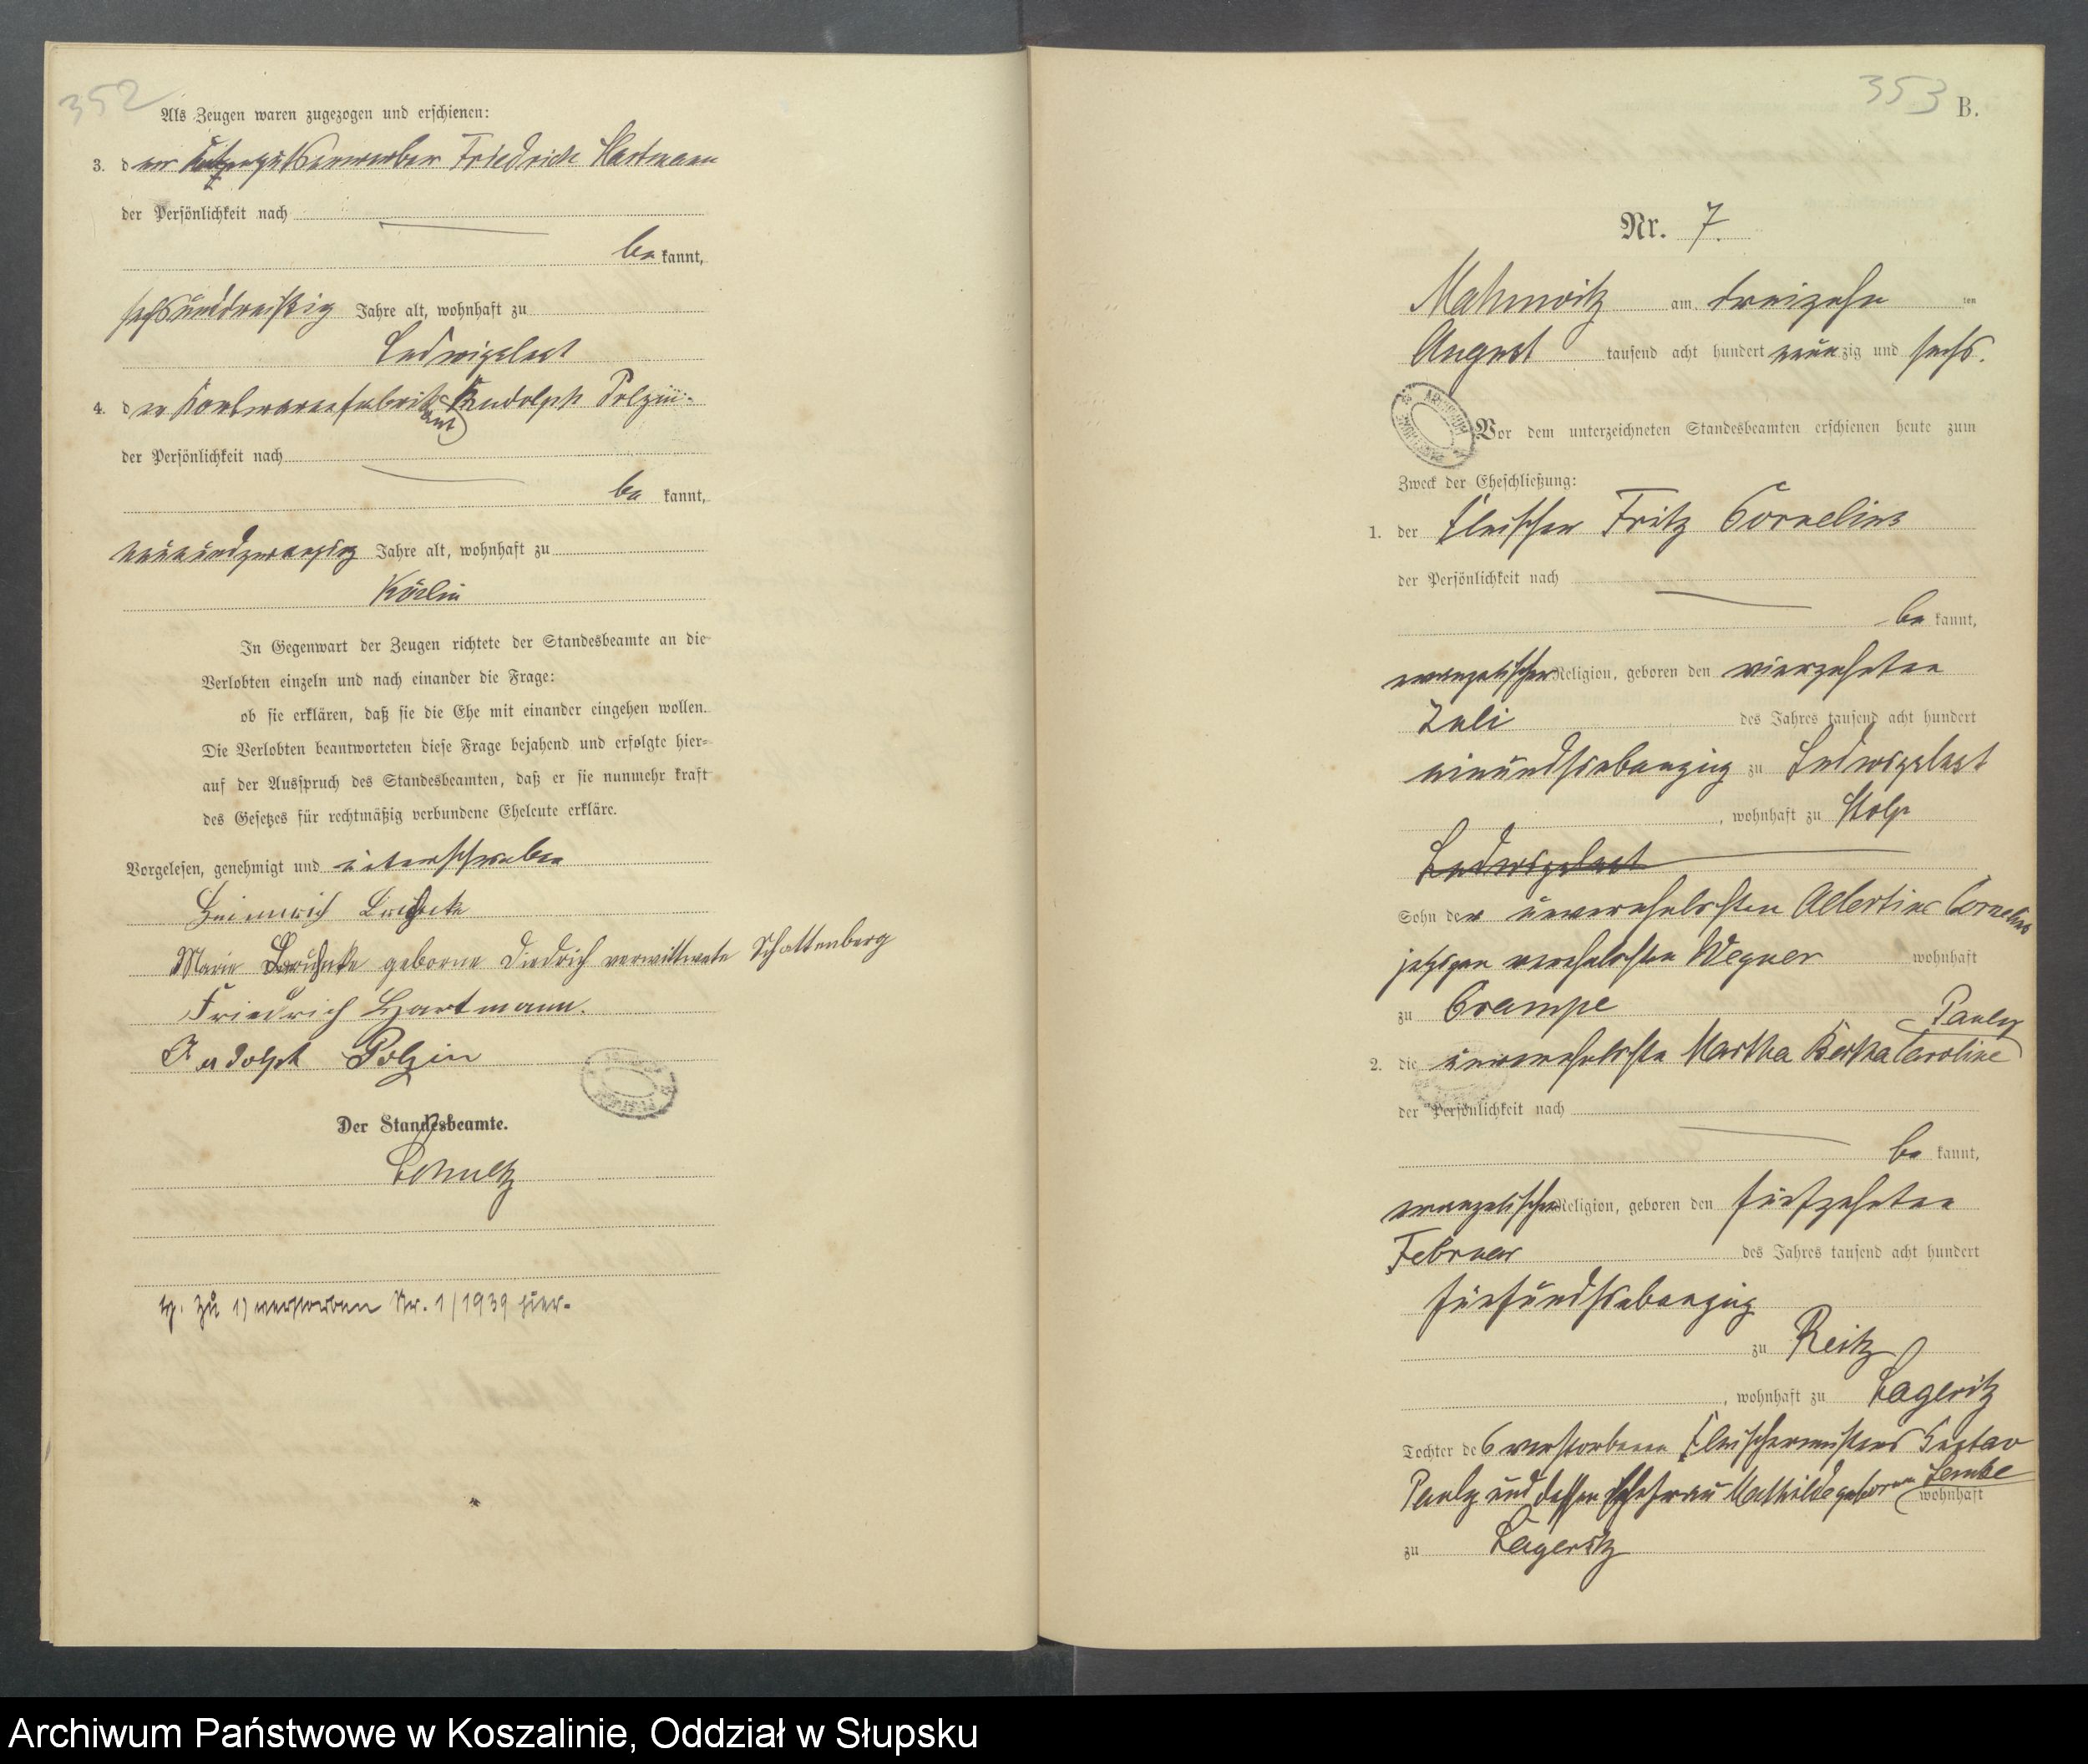 352
Als Zeugen waren zugezogen und erschienen:
3. der Friedrich Hartmann
der Persönlichkeit nach
be kannt,
sechsunddreißig Jahre alt, wohnhaft zu
Ludwigslust
4. der Korbwarenfabrikant Rudolph Polzin
der Persönlichkeit nach
be kannt,
neunundzwanzig Jahre alt, wohnhaft zu
Körlin
In Gegenwart der Zeugen richtete der Standesbeamte an die
Verlobten einzeln und nach einander die Frage:
ob sie erklären, daß sie die Ehe mit einander eingehen wollen.
Die Verlobten beantworteten diese Frage bejahend und erfolgte hier-
auf der Ausspruch des Standesbeamten, daß er sie nunmehr kraft
des Gesetzes für rechtmäßig verbundene Eheleute erkläre.
Vorgelesen, genehmigt und unterschrieben
Heinrich
Marie geborne Diedrich verwittwete Schattenberg
Friedrich Hartmann.
Rudolph Polzin
Der Standesbeamte.
Schultz
zu 1) verstorben Nr. 1/1939 hier.
353
B.
Nr. 7.
Mahnwitz am dreizehn ten
August tausend acht hundert neun zig und sechs.
Vor dem unterzeichneten Standesbeamten erschienen heute zum
Zweck der Eheschließung:
1. der Fleischer Fritz Cornelius
der Persönlichkeit nach
be kannt,
evangelischer Religion, geboren den vierzehnten
Juli des Jahres tausend acht hundert
einundsiebenzig zu Ludwigslust
, wohnhaft zu Stolp
Ludwigslust
Sohn der unverehelichten Albertine Cornelius
jetzigen verehelichten Wegner wohnhaft
zu Crampe
2. die unverehelichte Martha Bertha Caroline Pauly
der Persönlichkeit nach
be kannt,
evangelischer Religion, geboren den fünfzehnten
Februar des Jahres tausend acht hundert
fünfundsiebenzig
zu Reitz
, wohnhaft zu Lageritz
Tochter des verstorbenen Fleischermeisters Gustav
Pauly und dessen Ehefrau Mathilde geborenen Lemke wohnhaft
zu Lageritz
Archiwum Państwowe w Koszalinie, Oddział w Słupsku